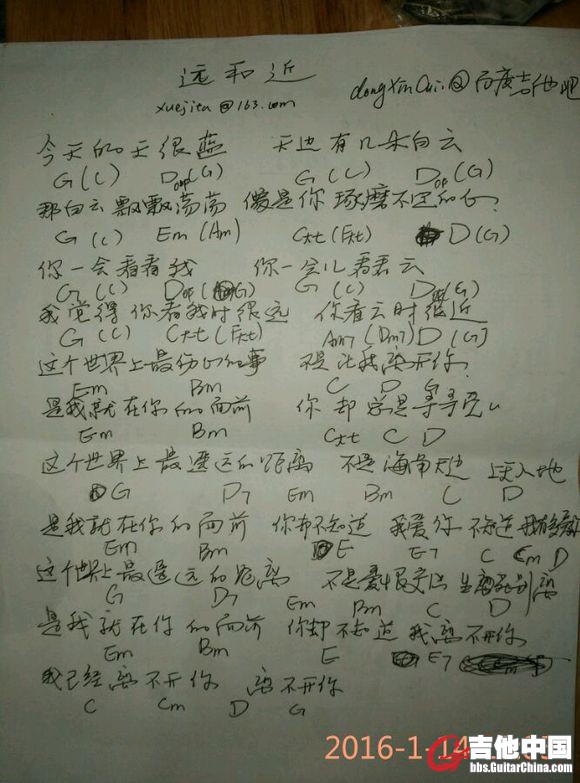 远和近
xuejita@163.com dongxincui@百度吉他吧
今天的天很蓝 天边有几朵白云
G(C) D(G) G(C) D(G)
那白云飘飘荡荡 像是你琢磨不定的心?
G(C) Em(Am) D(G)
你一会看看我 你一会儿看看云
G(C) G(C)
我觉得你看我时很远 你看云时很近
G(C) Am7(Dm7) D(G)
这个世界上最伤心的事 不是让我离开你
Em Bm C D
是我就在你的面前 你却总是寻寻觅
Em Bm C D
这个世界上最遥远的距离 不是海角天边 上天入地
G D7 Em Bm C D
是我就在你的面前 你却不知道 我爱你 不知道我
Em Bm E E7 C Cm D
这个世界上最遥远的距离 不是 生离死别
G D7 Em Bm C D
是我就在你的面前 你却不知道 我离不开你
Em Bm E E7
我已经离不开你 离不开你
C Cm D G
2016-1-14
吉他中国
bbs.GuitarChina.com